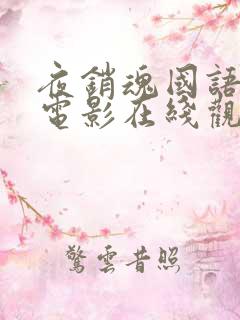 夜銷魂國語
電影在綫觀
驚雲昔照